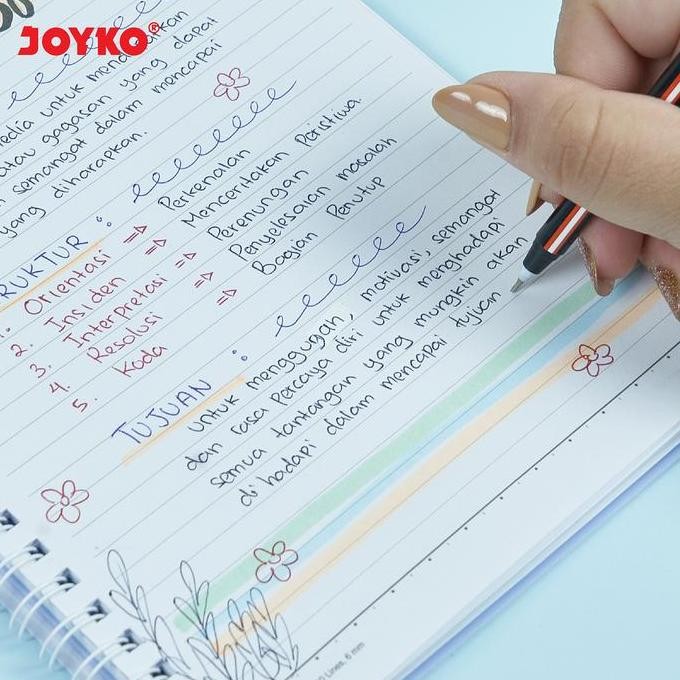 JOYKO
media untuk mendapatkan
atau gagasan yang dapat
semangat dalam mencapai
yang diharapkan.
RUKTUR :
1. Orientasi ⇒ Perkenalan
2. Insiden ⇒ Menceritakan Peristiwa
3. Interpretasi ⇒ Perenungan
4. Resolusi ⇒ Penyelesaian masalah
5. Koda ⇒ Bagian Penutup
TUJUAN :
untuk menggugan, motivasi, semangat
dan rasa percaya diri untuk menghadapi
semua tantangan yang mungkin akan
di hadapi dalam mencapai tujuan
Lines, 6 mm